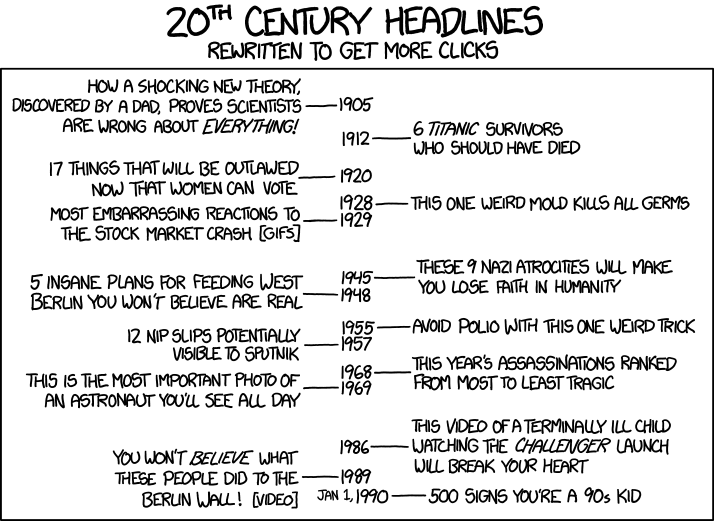 20TH CENTURY HEADLINES
REWRITTEN TO GET MORE CLICKS
HOW A SHOCKING NEW THEORY,
DISCOVERED BY A DAD, PROVES SCIENTISTS
ARE WRONG ABOUT EVERYTHING!
1905
1912
6 TITANIC SURVIVORS
WHO SHOULD HAVE DIED
17 THINGS THAT WILL BE OUTLAWED
NOW THAT WOMEN CAN VOTE
1920
1928
THIS ONE WEIRD MOLD KILLS ALL GERMS
MOST EMBARRASSING REACTIONS TO
THE STOCK MARKET CRASH [GIFS]
1929
1945
THESE 9 NAZI ATROCITIES WILL MAKE
YOU LOSE FAITH IN HUMANITY
5 INSANE PLANS FOR FEEDING WEST
BERLIN YOU WON'T BELIEVE ARE REAL
1948
1955
AVOID POLIO WITH THIS ONE WEIRD TRICK
12 NIP SLIPS POTENTIALLY
VISIBLE TO SPUTNIK
1957
1968
THIS YEAR'S ASSASSINATIONS RANKED
FROM MOST TO LEAST TRAGIC
THIS IS THE MOST IMPORTANT PHOTO OF
AN ASTRONAUT YOU'LL SEE ALL DAY
1969
1986
THIS VIDEO OF A TERMINALLY ILL CHILD
WATCHING THE CHALLENGER LAUNCH
WILL BREAK YOUR HEART
YOU WON'T BELIEVE WHAT
THESE PEOPLE DID TO THE
BERLIN WALL! [VIDEO]
1989
JAN 1, 1990
500 SIGNS YOU'RE A 90s KID